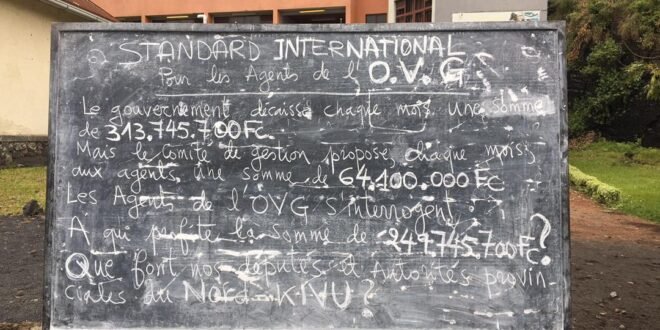 STANDARD INTERNATIONAL
Pour les Agents de l'O.V.G
Le gouvernement décaisse chaque mois une somme
de 313.745.700FC.
Mais le Comité de gestion propose chaque mois,
aux agents une somme de 64.100.000 FC
Les Agents de l'OVG s'interrogent:
A qui profite la somme de 249.745.700FC?
Que font nos députés et Autorités provin-
ciales du Nord-KIVU?